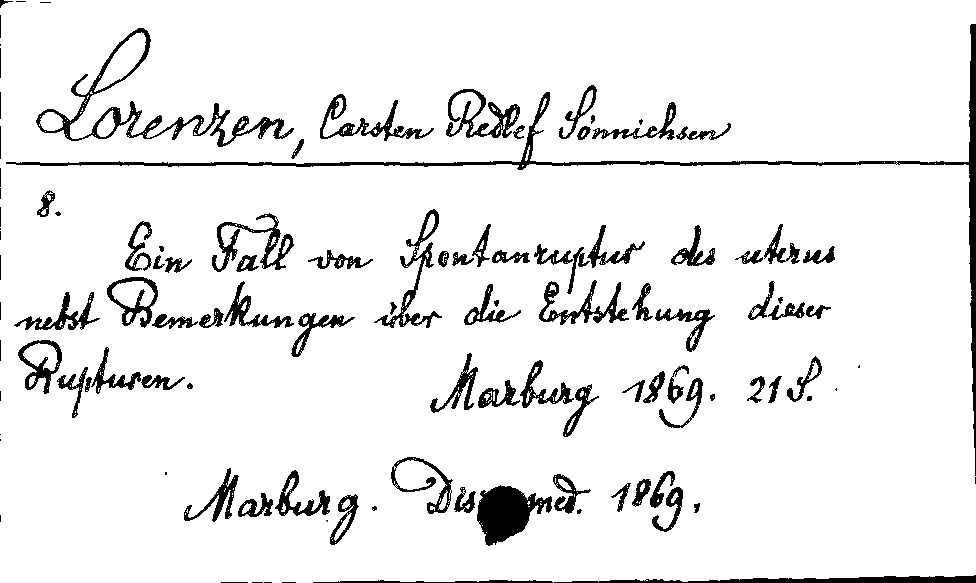 Lorenzen, Carsten Redlef Sönnichsen
8.
Ein Fall von Spontanruptur des uterus
nebst Bemerkungen über die Entstehung dieser
Rupturen.
Marburg 1869. 21 S.
Marburg. Diss. med. 1869.